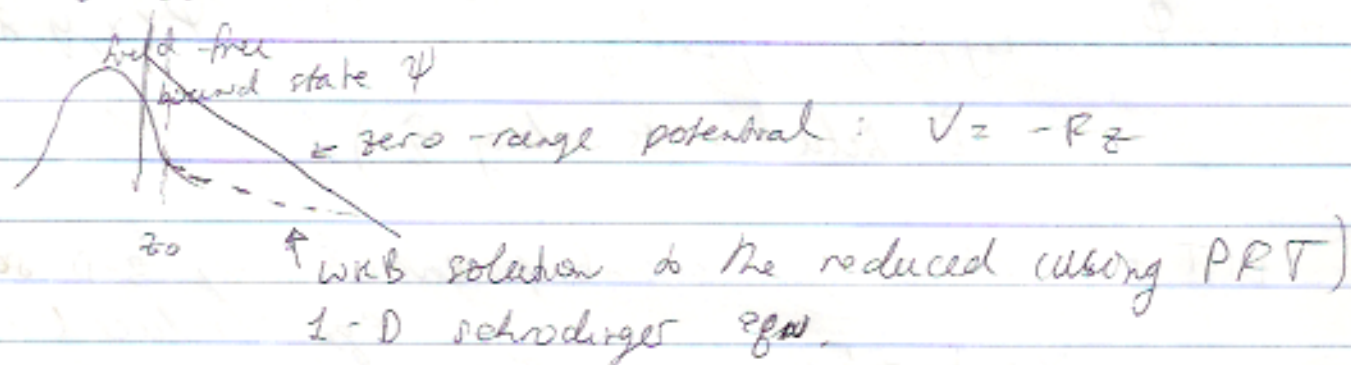 field-free
bound state ψ
← zero-range potential : V = -Fz
z₀
↑ WKB solution to the reduced (using PFT)
1-D schrodinger eqn.